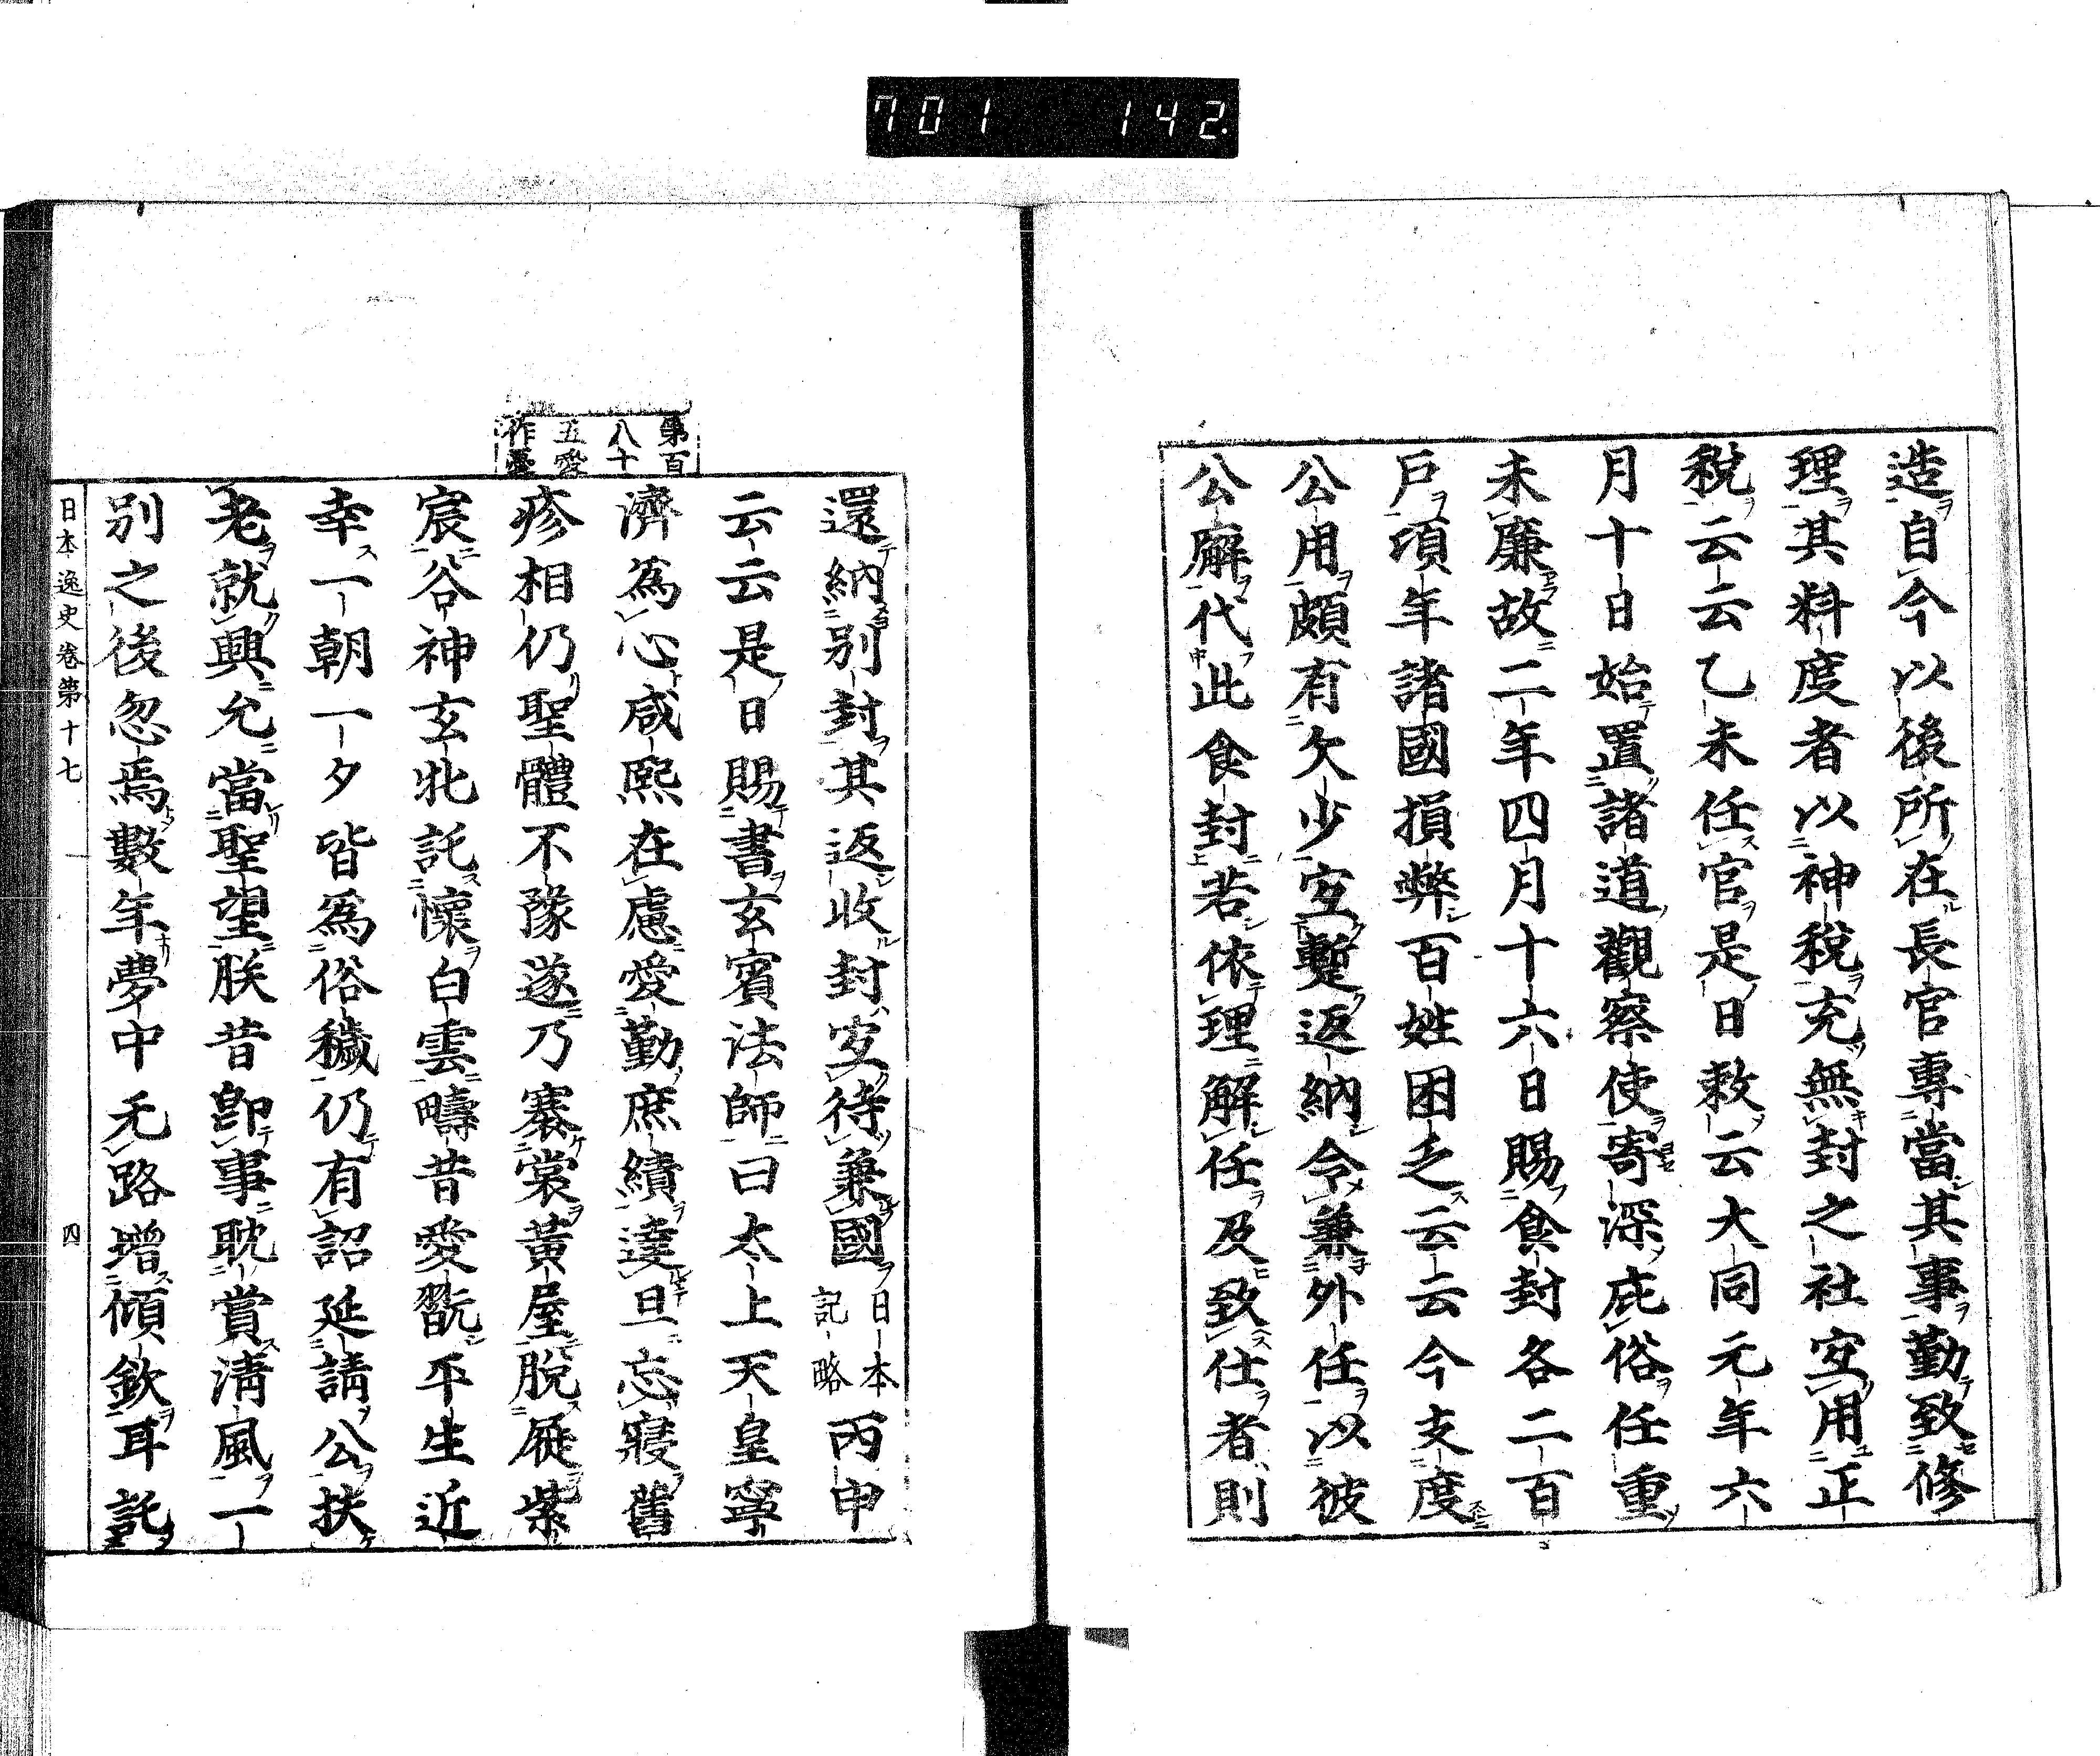 701 142.
造自今以後所在長官專當其事勤致修
理其料度者以神稅充無封之社㝎用正
稅云云乙未任官是日敕云大同元年六
月十日始置諸道觀察使寄深庇俗任重
未廉故二年四月十六日賜食封各二百
戸項年諸國損弊百姓困乏云云今支度
公用頗有欠少冝蹔返納令兼外任以彼
公廨代此食封若依理解任及致仕者則
第百
八十
五愛
作憂
還納別封其返收封冝待兼國日本記略丙申
云云是日賜書玄賓法師曰太上天皇寧
濟爲心咸熙在慮愛勤庶績達旦忘寢舊
疹相仍聖體不豫遂乃褰裳黃屋脫屣紫
宸谷神玄牝託懷白雲疇昔愛翫平生近
幸一朝一夕皆爲俗穢仍有詔延請公扶
老就輿允當聖望朕昔卽事耽賞淸風一
別之後忽焉數年夢中无路增傾欽耳託
日本逸史卷第十七 四